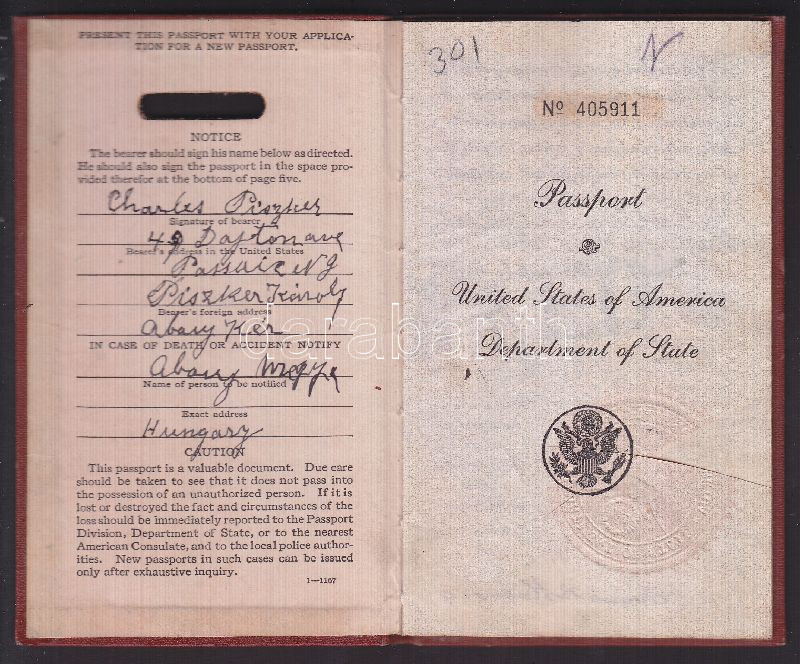 PRESENT THIS PASSPORT WITH YOUR APPLICA-
TION FOR A NEW PASSPORT.
NOTICE
The bearer should sign his name below as directed.
He should also sign the passport in the space pro-
vided therefor at the bottom of page five.
Charles Piszker
Signature of bearer
49 Dayton ave
Bearer's address in the United States
Passaic NJ
Piszker Károly
Bearer's foreign address
Abauj Kér
IN CASE OF DEATH OR ACCIDENT NOTIFY
Abauj Megye
Name of person to be notified
Exact address
Hungary
CAUTION
This passport is a valuable document. Due care
should be taken to see that it does not pass into
the possession of an unauthorized person. If it is
lost or destroyed the fact and circumstances of the
loss should be immediately reported to the Passport
Division, Department of State, or to the nearest
American Consulate, and to the local police author-
ities. New passports in such cases can be issued
only after exhaustive inquiry.
1—1167
301
N
Nº 405911
Passport
United States of America
Department of State
darabanth